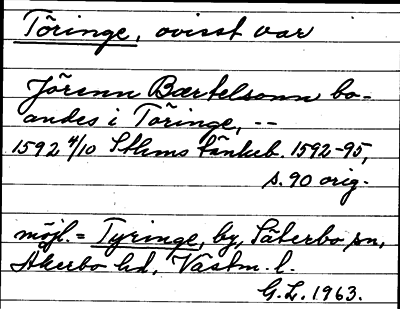 Töringe, ovisst var
Jörenn Bærtelsonn bo-
andes i Töringe, --
1592 4/10 Sthms tänkeb. 1592-95,
s. 90 orig.
möjl. = Tyringe, by, Säterbo sn,
Åkerbo hd, Västm. l.
G.L. 1963.